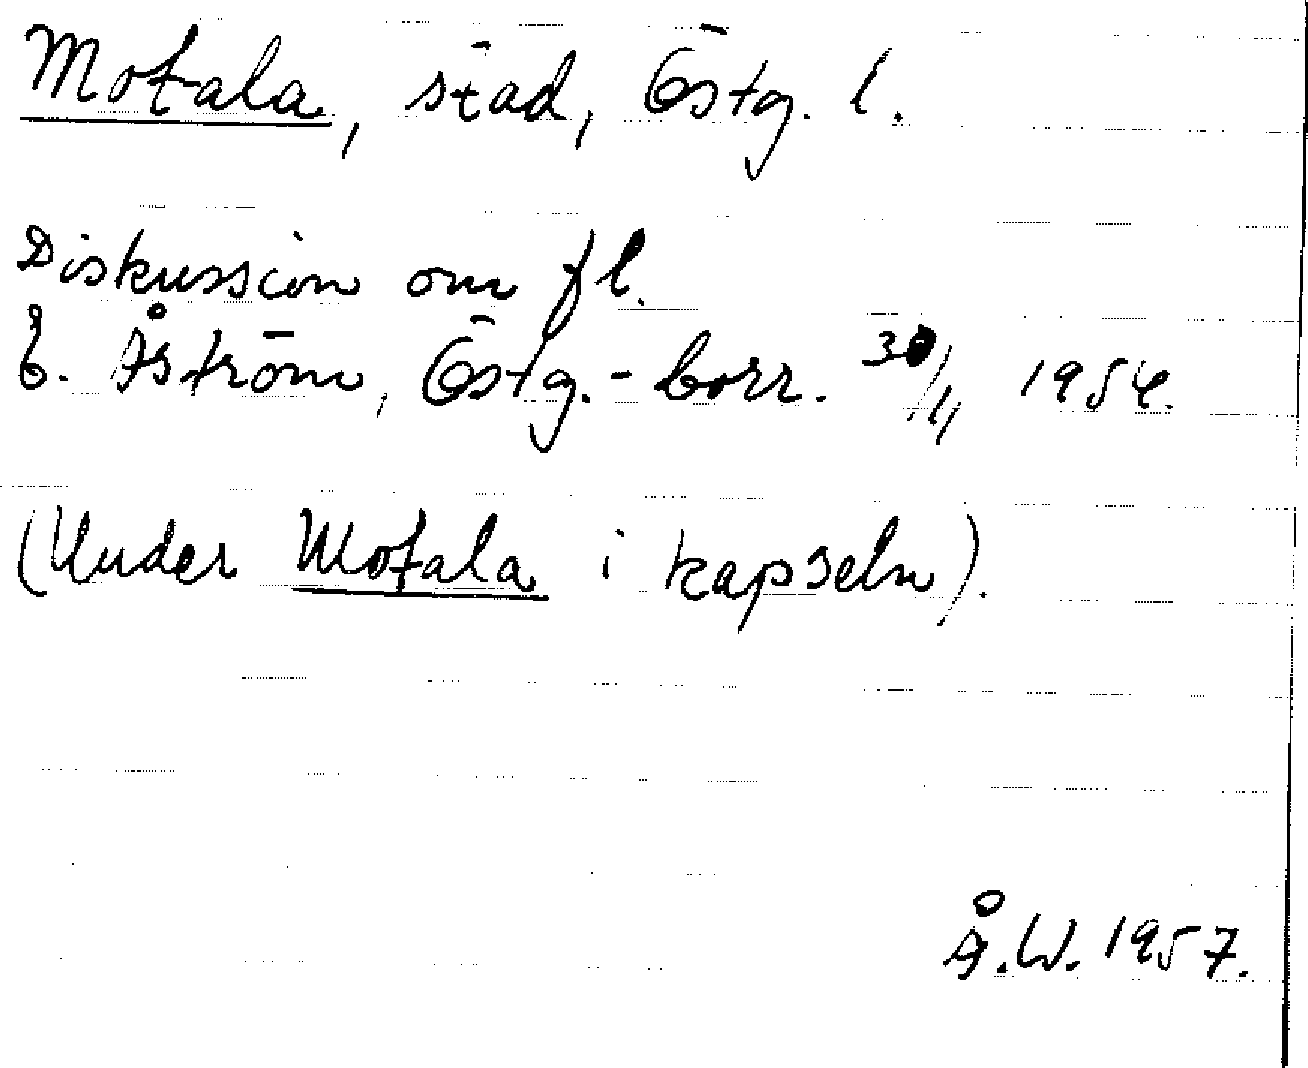 Motala, stad, Östg. l.
Diskussion om fl.
E. Åström, Östg.-Corr. 30/11 1954.
(Under Motala i kapseln).
Å.W. 1957.